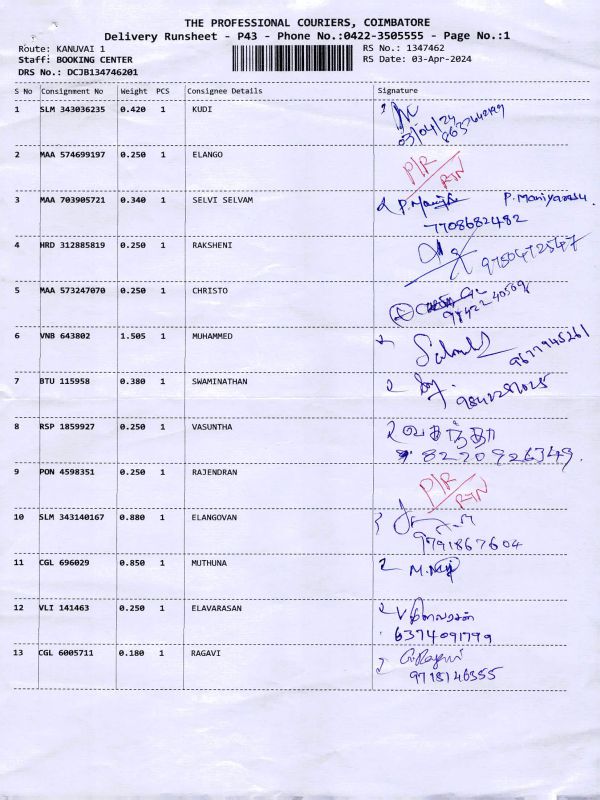 THE PROFESSIONAL COURIERS, COIMBATORE
Delivery Runsheet - P43 - Phone No.:0422-3505555 - Page No.:1
Route: KANUVAI 1 RS No.: 1347462
Staff: BOOKING CENTER RS Date: 03-Apr-2024
DRS No.: DCJB134746201
S No Consignment No Weight PCS Consignee Details Signature
1 SLM 343036235 0.420 1 KUDI
03/04/24
2 MAA 574699197 0.250 1 ELANGO P/R
RTN
3 MAA 703905721 0.340 1 SELVI SELVAM P. Maniyarasu
7708682482
4 HRD 312885819 0.250 1 RAKSHENI 9750472547
5 MAA 573247070 0.250 1 CHRISTO
6 VNB 643802 1.505 1 MUHAMMED 9677945261
7 BTU 115958 0.380 1 SWAMINATHAN
8 RSP 1859927 0.250 1 VASUNTHA வசந்தா
8220926349.
9 PON 4598351 0.250 1 RAJENDRAN P/R
RTN
10 SLM 343140167 0.880 1 ELANGOVAN
9791867604
11 CGL 696029 0.850 1 MUTHUNA
12 VLI 141463 0.250 1 ELAVARASAN
6374091799
13 CGL 6005711 0.180 1 RAGAVI
9718146355